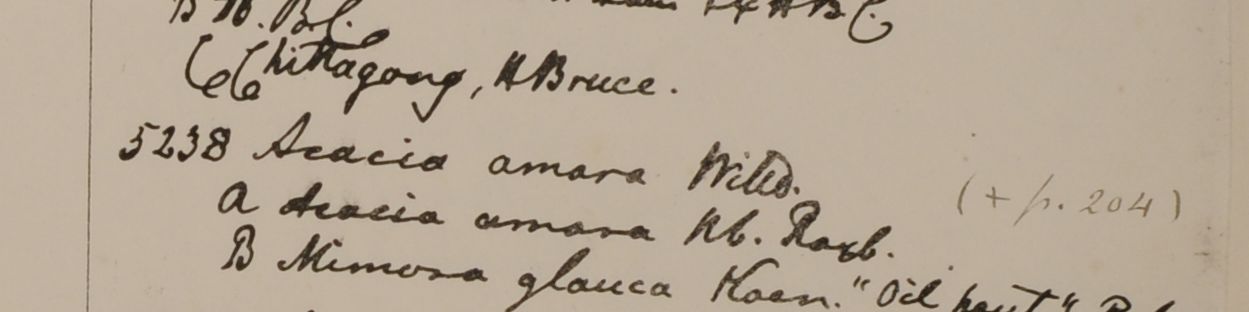 C Chittagong, HBruce.
5238 Acacia amara Willd.
(+ p. 204)
A Acacia amara Hb. Roxb.
B Mimosa glauca Koen. "Oil